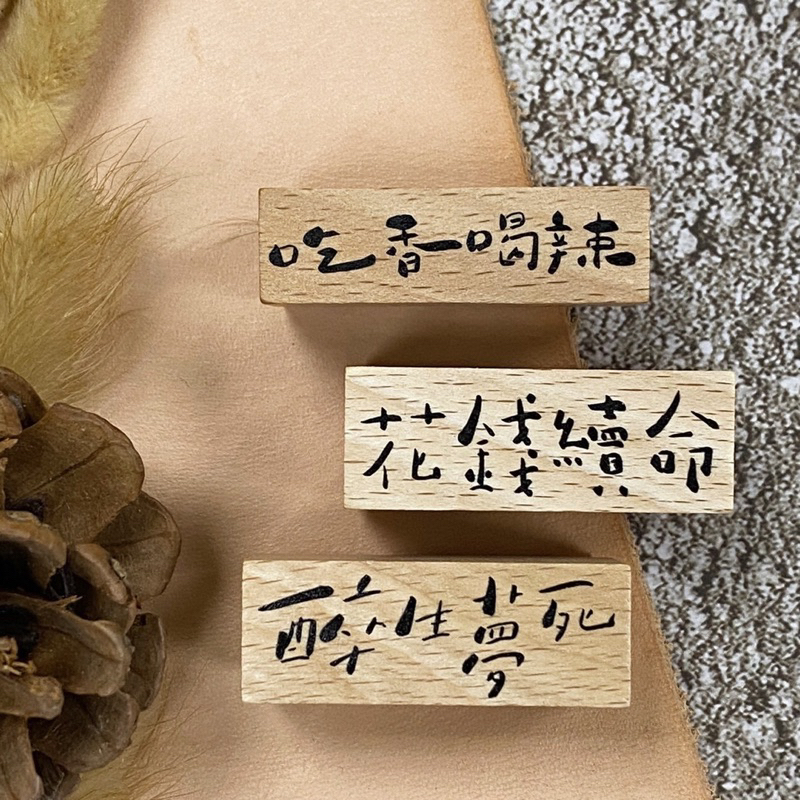 吃香喝辣
花錢續命
醉生夢死